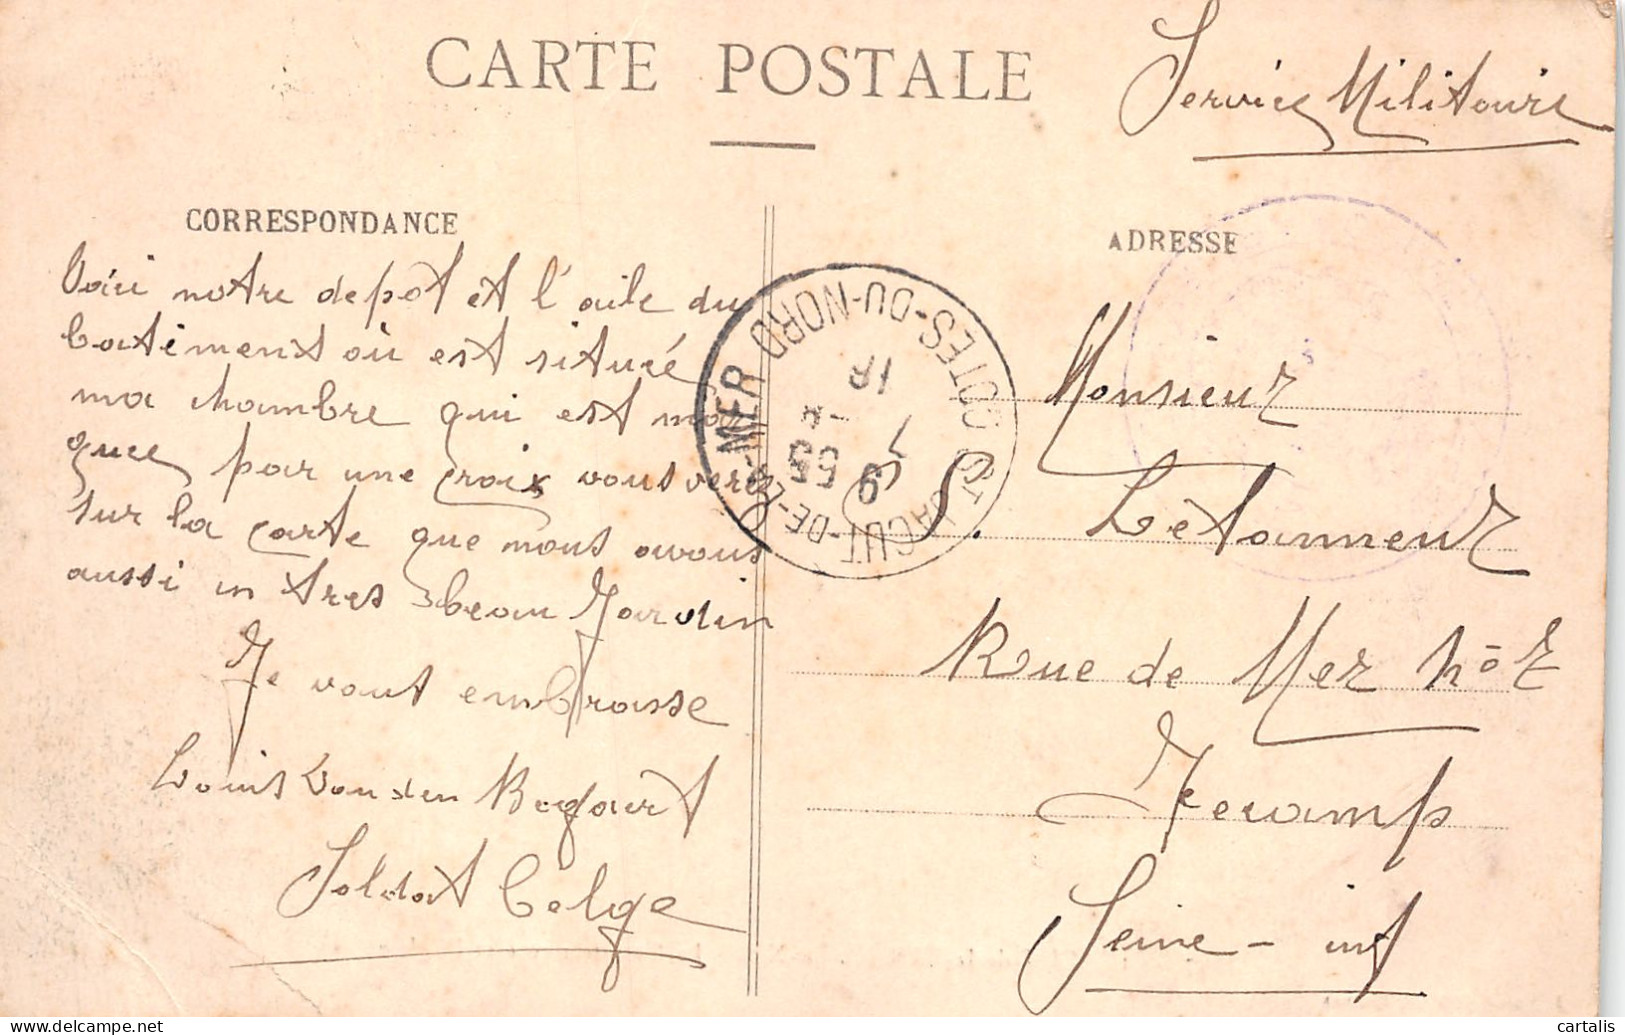 CARTE POSTALE
Service Militaire
CORRESPONDANCE
Voici notre depot et l'aile du
batiment où est situéé
ma chambre qui est mar
quee par une croix vous verez
sur la carte que nous avous
aussi un tres beau Jardin
Je vout embrasse
Louis Van den Bogaert
Soldat Belge
ADRESSE
ST JACUT-DE-LA-MER COTES-DU-NORD
Monsieur
S. Letanneur
Rue de Mer nº 7
Fecamp
Seine - inf
cartalis